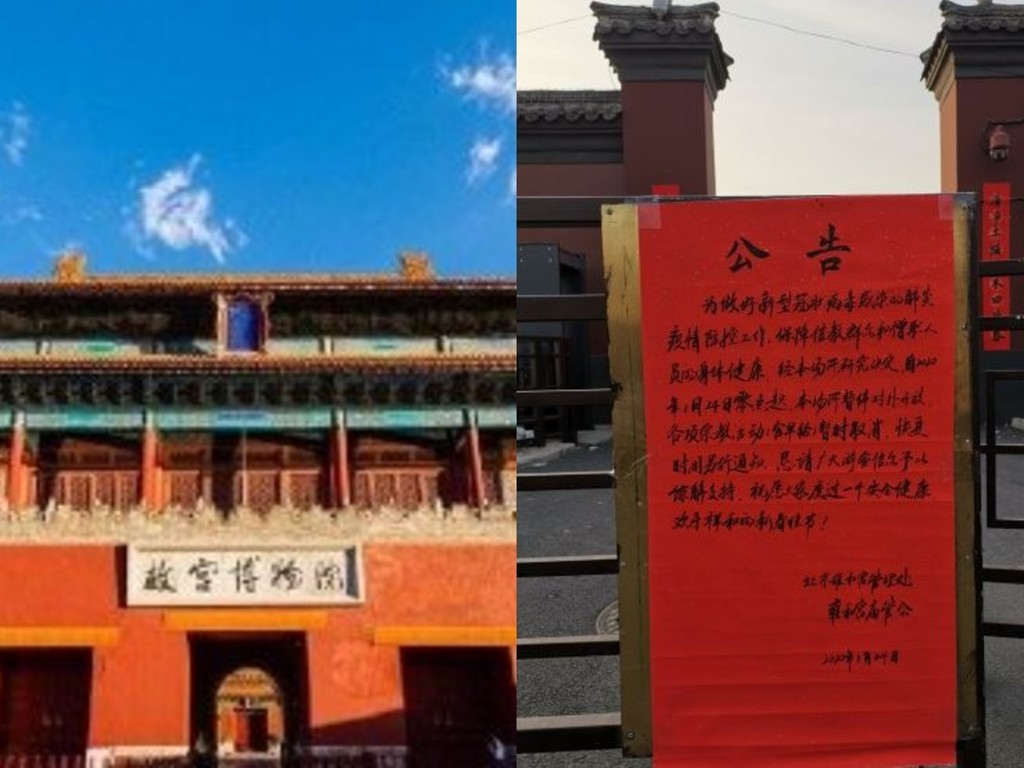 故宫博物院
公告
为做好新型冠状病毒感染的肺炎
疫情防控工作，保障信教群众和僧职人
员的身体健康，经本场所研究决定，自2020
年1月24日零点起，本场所暂停对外开放，
各项宗教活动（含早课）暂时取消，恢复
时间另行通知，恳请广大游客信众予以
谅解支持，祝愿大家度过一个安全健康
欢乐祥和的新春佳节！
北京雍和宫管理处
雍和宫庙管会
2020年1月24日